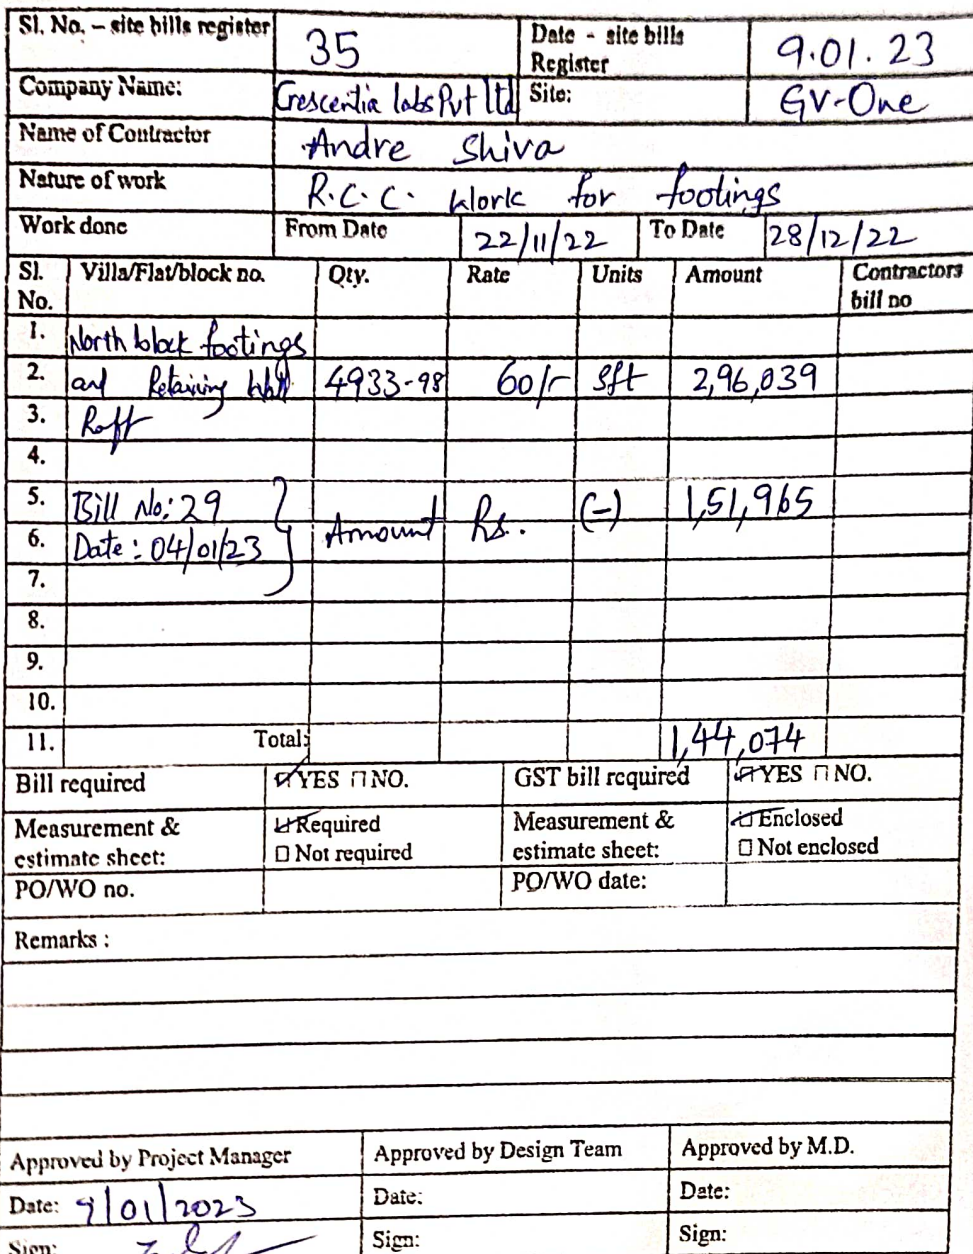 Sl. No. – site bills register 35 Date - site bills Register 9.01.23
Company Name: Crescentia labs Pvt ltd Site: GV-One
Name of Contractor Andre Shiva
Nature of work R.C.C. Work for footings
Work done From Date 22/11/22 To Date 28/12/22
Sl. No. Villa/Flat/block no. Qty. Rate Units Amount Contractors bill no
1. North block footings
2. and Retaining Wall 4933-98 60/- sft 2,96,039
3. Raft
4.
5. Bill No: 29 Amount Rs. (-) 1,51,965
6. Date: 04/01/23
7.
8.
9.
10.
11. Total: 1,44,074
Bill required ☑ YES ☐ NO. GST bill required ☑ YES ☐ NO.
Measurement & estimate sheet: ☑ Required ☐ Not required Measurement & estimate sheet: ☑ Enclosed ☐ Not enclosed
PO/WO no. PO/WO date:
Remarks :
Approved by Project Manager Approved by Design Team Approved by M.D.
Date: 9/01/2023 Date: Date:
Sign: Sign: Sign: